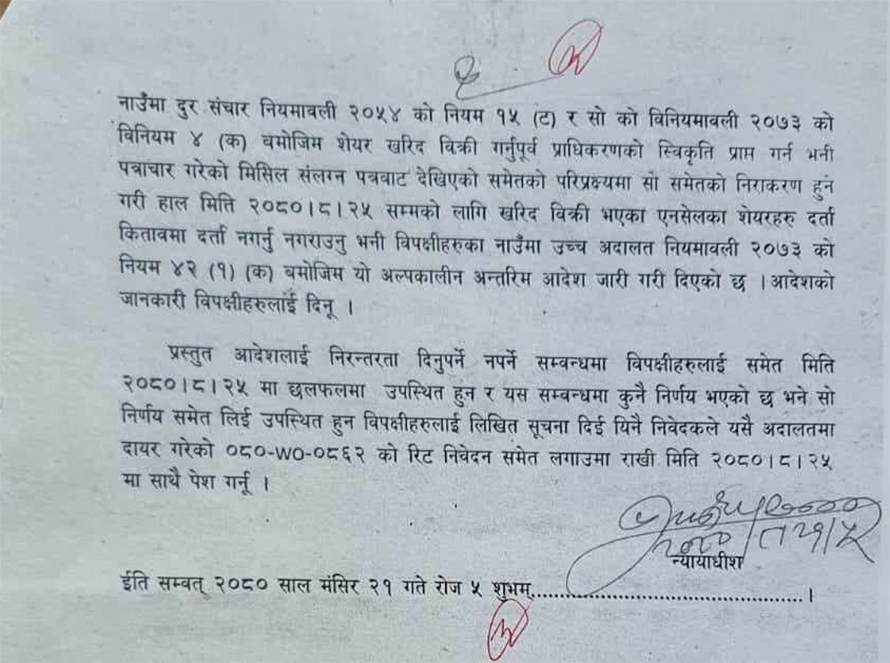 नाउँमा दुर संचार नियमावली २०५४ को नियम १५ (ट) र सो को विनियमावली २०७३ को
विनियम ४ (क) बमोजिम शेयर खरिद विक्री गर्नुपूर्व प्राधिकरणको स्विकृति प्राप्त गर्न भनी
पत्राचार गरेको मिसिल संलग्न पत्रवाट देखिएको समेतको परिप्रक्ष्यमा सो समेतको निराकरण हुने
गरी हाल मिति २०८०।८।२५ सम्मको लागि खरिद विक्री भएका एनसेलका शेयरहरु दर्ता
कितावमा दर्ता नगर्नु नगराउनु भनी विपक्षीहरुका नाउँमा उच्च अदालत नियमावली २०७३ को
नियम ४२ (१) (क) बमोजिम यो अल्पकालीन अन्तरिम आदेश जारी गरी दिएको छ । आदेशको
जानकारी विपक्षीहरुलाई दिनू ।
प्रस्तुत आदेशलाई निरन्तरता दिनुपर्ने नपर्ने सम्बन्धमा विपक्षीहरुलाई समेत मिति
२०८०।८।२५ मा छलफलमा उपस्थित हुन र यस सम्बन्धमा कुनै निर्णय भएको छ भने सो
निर्णय समेत लिई उपस्थित हुन विपक्षीहरुलाई लिखित सूचना दिई यिनै निवेदकले यसै अदालतमा
दायर गरेको ०८०-WO-०८६२ को रिट निवेदन समेत लगाउमा राखी मिति २०८०।८।२५
मा साथै पेश गर्नू ।
न्यायाधीश
ईति सम्वत् २०८० साल मंसिर २१ गते रोज ५ शुभम्..........................................।